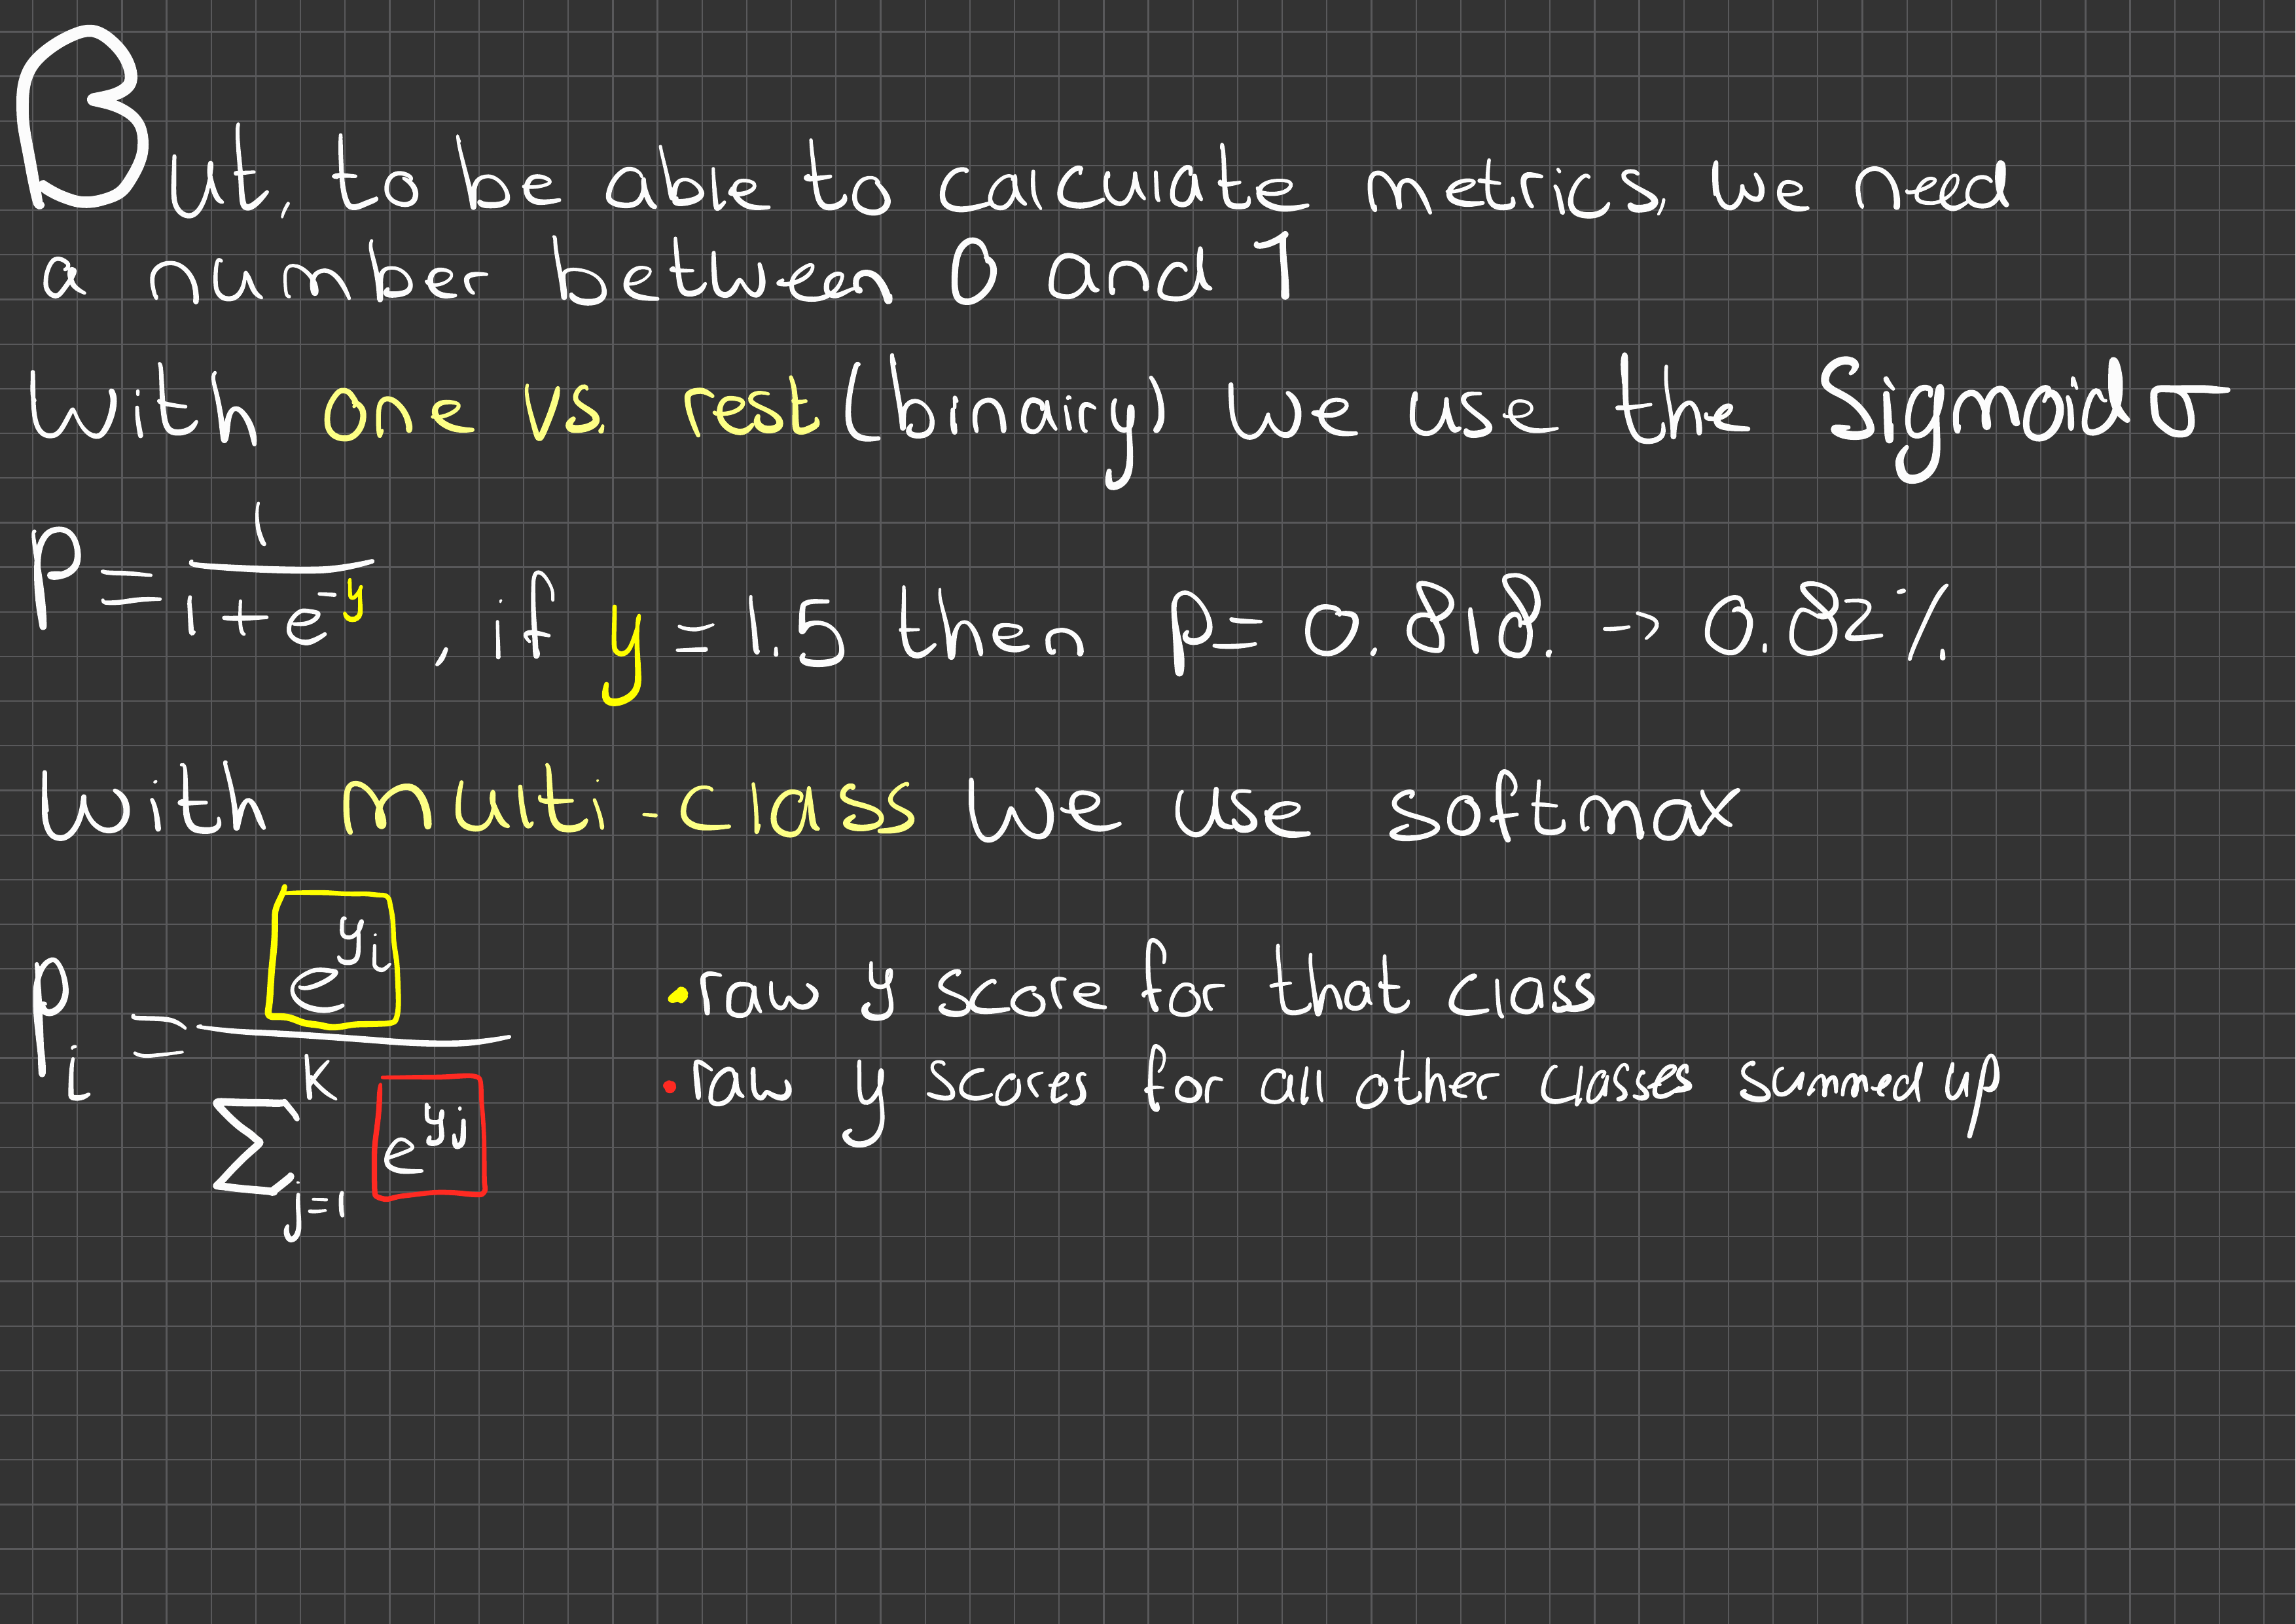 But, to be able to calculate metrics, we need
a number between 0 and 1
With one vs. rest (binairy) we use the Sigmoid σ
P = 1 / (1 + e^-y) , if y = 1.5 then p = 0.818. → 0.82%
With multi-class we use softmax
P_i = e^y_i / Σ_j=1^K e^y_j
• raw y score for that class
• raw y scores for all other classes summed up